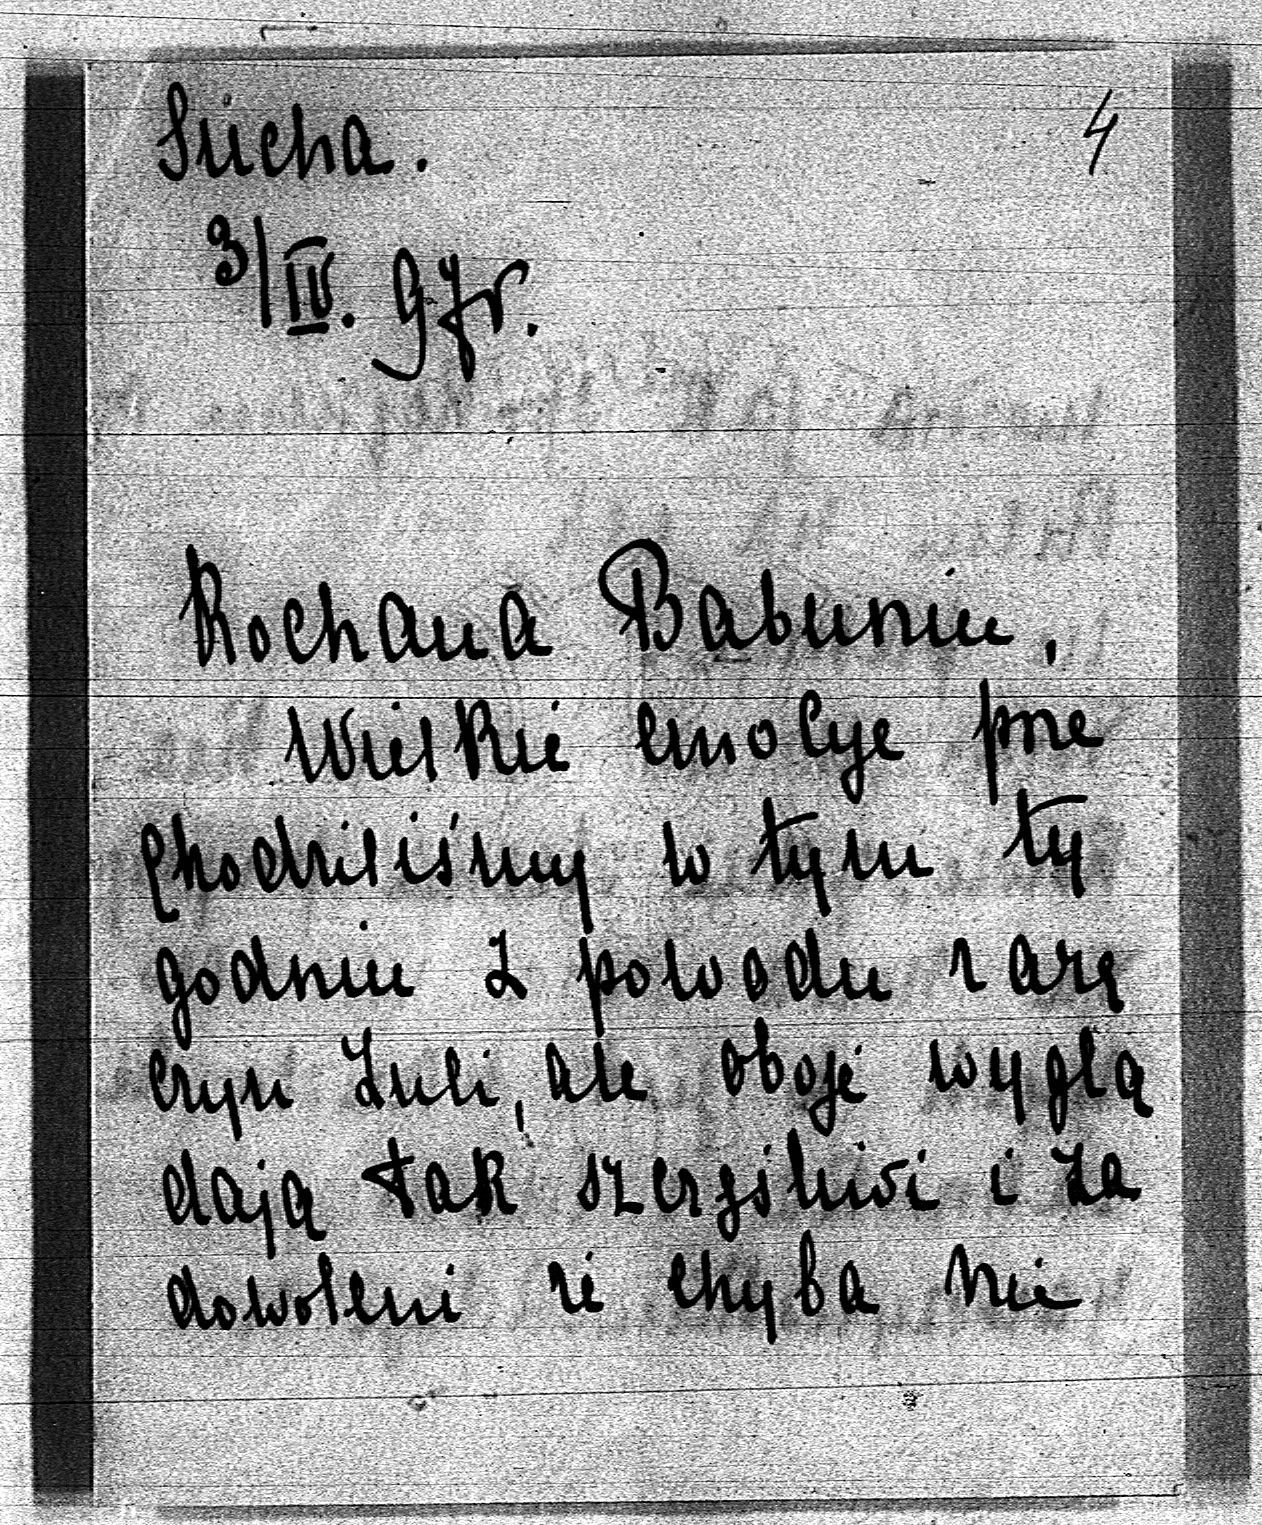 Sucha.
4
3/IV. 97r.
Kochana Babuniu,
Wielkie emocye prze
chodziliśmy w tym ty
godniu z powodu zarę
czyn Zuli, ale oboje wyglą
dają tak szczęśliwi i za
dowoleni że chyba nie